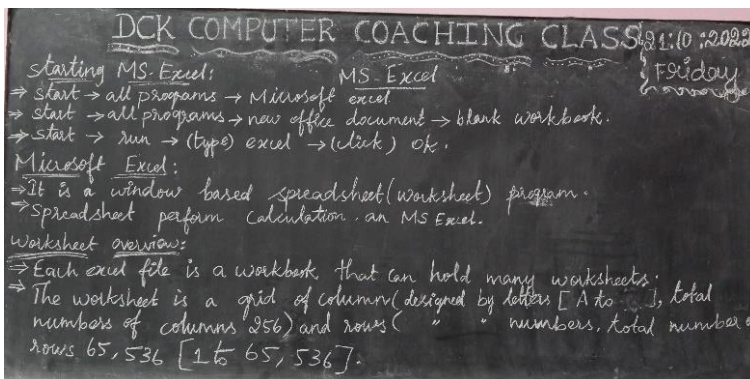 DCK COMPUTER COACHING CLASS
21:10:2022
Friday
MS-Excel
Starting MS-Excel:
⇒ Start → all programs → Microsoft excel
⇒ start → all programs → new office document → blank workbook.
⇒ start → run → (type) excel → (click) ok.
Microsoft Excel:
⇒ It is a window based spreadsheet (worksheet) program.
⇒ Spreadsheet perform calculation. an MS Excel.
Worksheet overview:
⇒ Each excel file is a workbook, that can hold many worksheets.
⇒ The worksheet is a grid of column (designed by letters [A to ], total
numbers of columns 256) and rows ( " " numbers, total number
rows 65,536 [1 to 65,536].